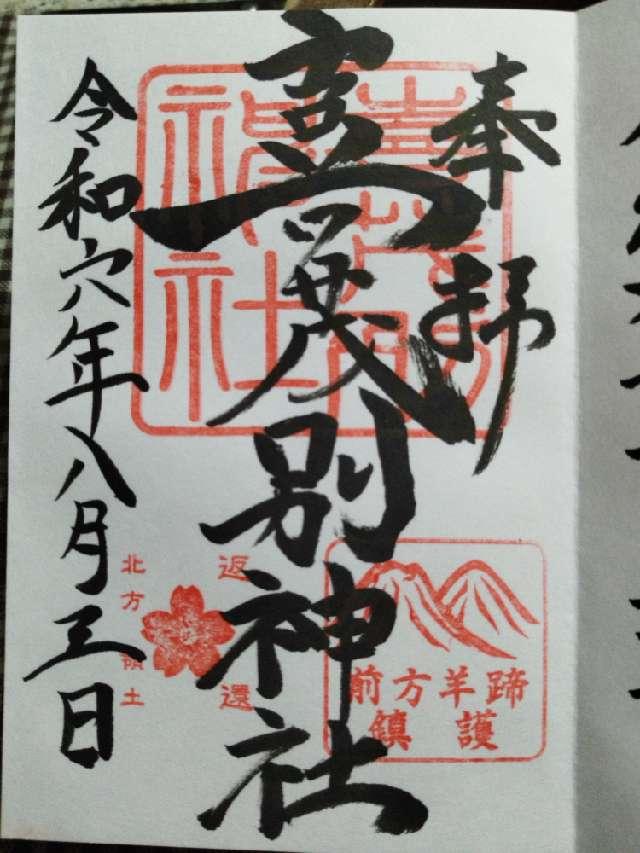 奉拝
喜茂別神社
令和六年八月三日
喜茂別
神社
前方羊蹄
鎮護
返還
北方領土